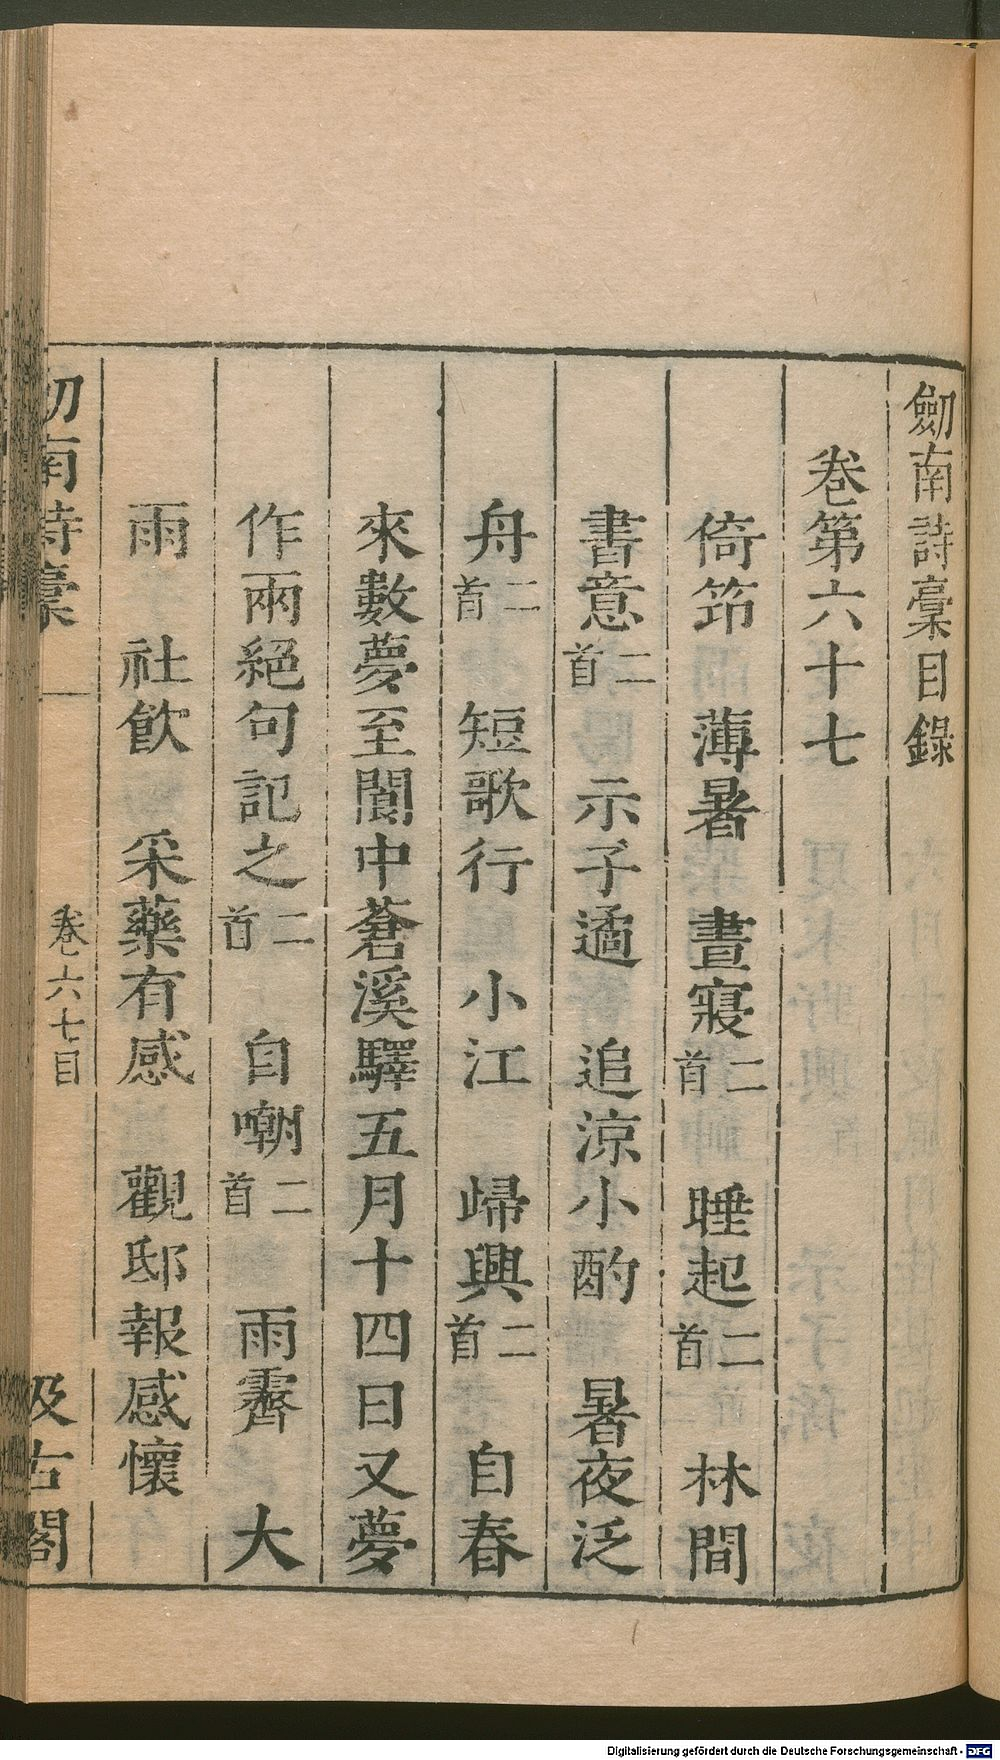 劒南詩稾目錄
卷第六十七
倚笻 薄暑 晝寢二首 睡起二首 林間
書意二首 示子遹 追涼小酌 暑夜泛
舟二首 短歌行 小江 歸興二首 自春
來數夢至閬中蒼溪驛五月十四日又夢
作兩絕句記之二首 自嘲二首 雨霽 大
雨 社飲 采藥有感 觀邸報感懷
劒南詩稾 卷六七目 汲古閣
Digitalisierung gefördert durch die Deutsche Forschungsgemeinschaft - DFG